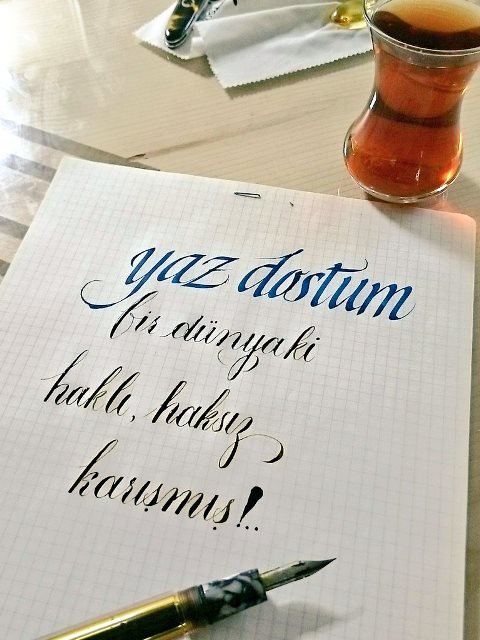 yaz dostum
bir dünyaki
haklı, haksız
karışmış!..